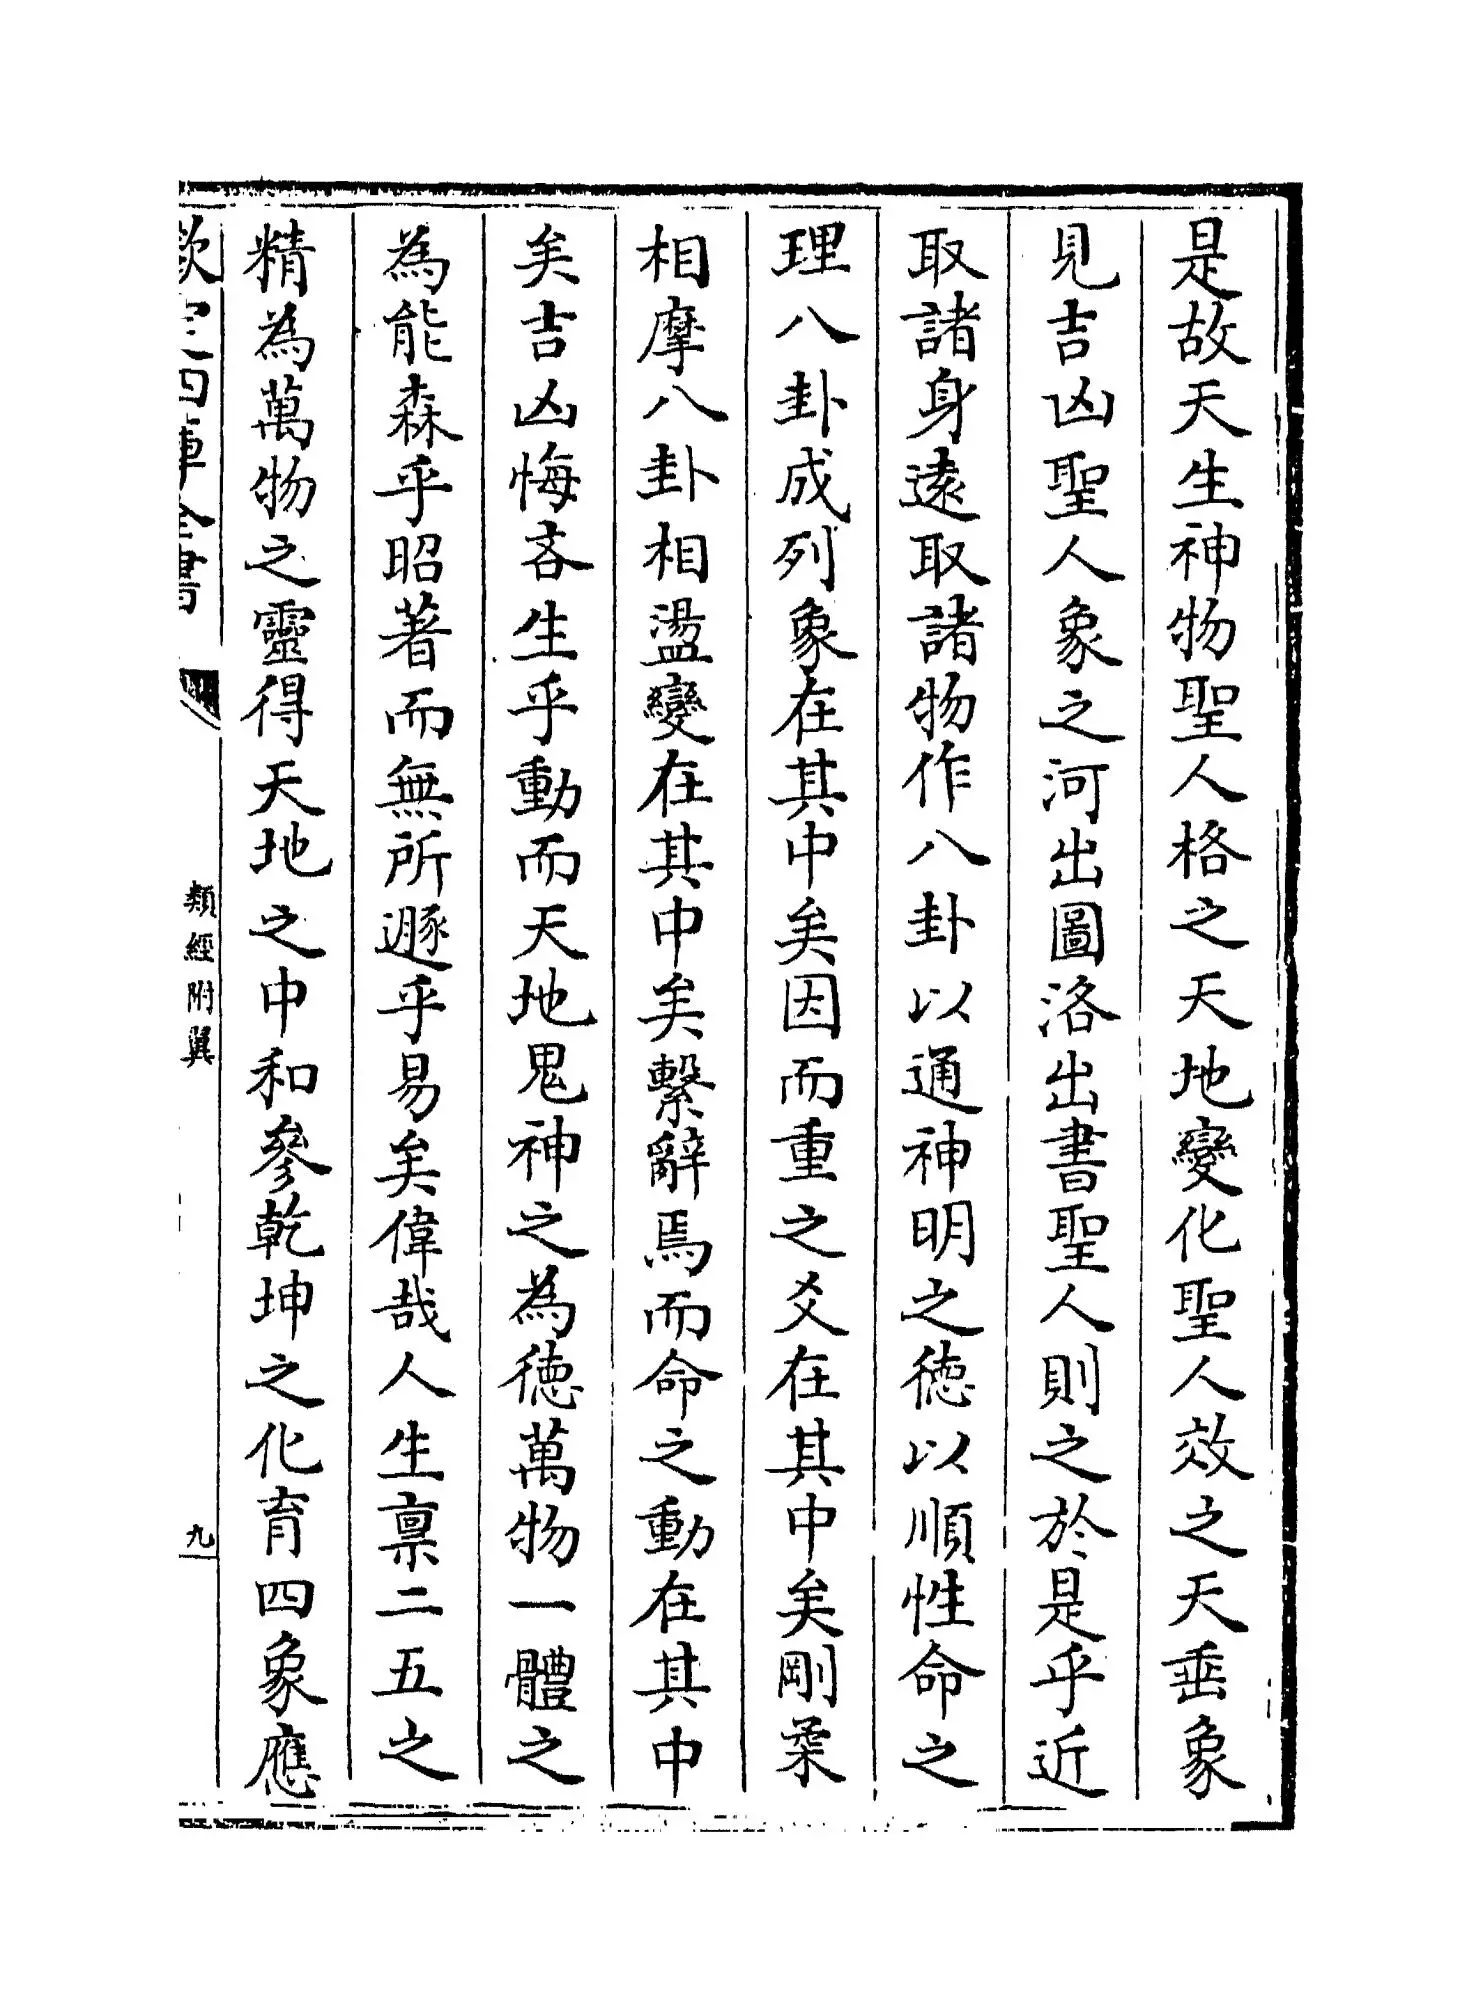 是故天生神物聖人格之天地變化聖人效之天垂象
見吉凶聖人象之河出圖洛出書聖人則之於是乎近
取諸身遠取諸物作八卦以通神明之徳以順性命之
理八卦成列象在其中矣因而重之爻在其中矣剛柔
相摩八卦相盪變在其中矣繫辭焉而命之動在其中
矣吉凶悔吝生乎動而天地鬼神之為徳萬物一體之
為能森乎昭著而無所遯乎易矣偉哉人生禀二五之
精為萬物之靈得天地之中和參乾坤之化育四象應
欽定四庫全書
類經附翼
九